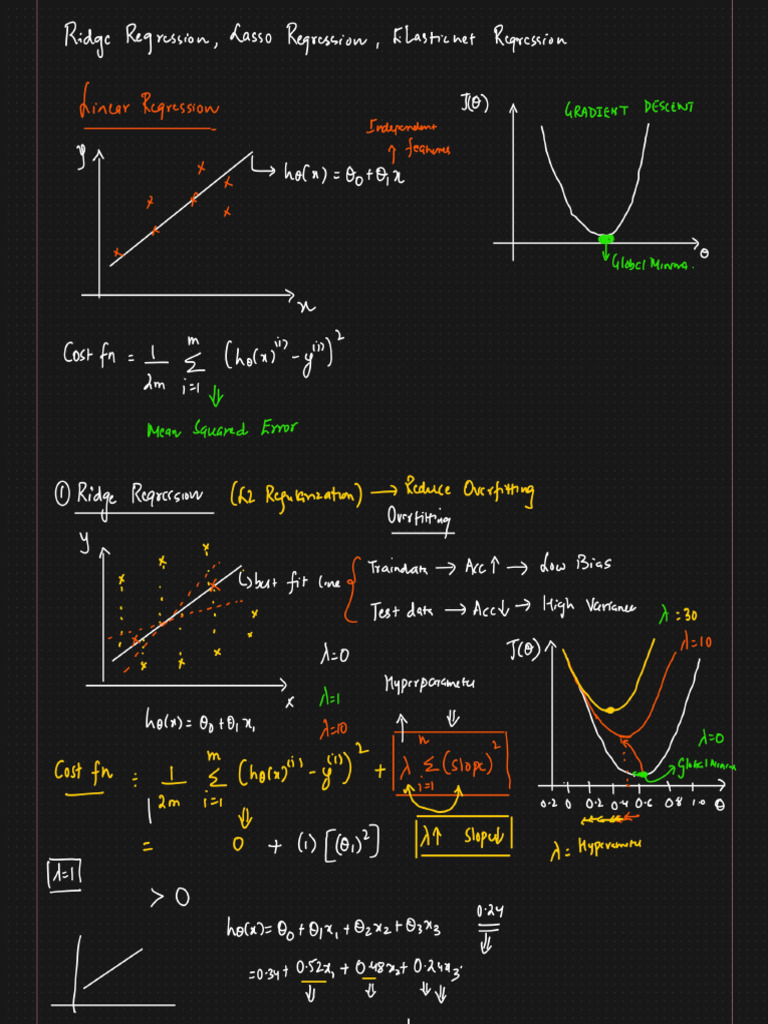 Ridge Regression, Lasso Regression, Elasticnet Regression
Linear Regression
J(θ)
GRADIENT DESCENT
Independent
features
y
hθ(x) = θ0 + θ1x
θ
Global Minima.
x
Cost fn = 1/2m Σ_{i=1}^{m} (hθ(x)^(i) - y^(i))^2
Mean Squared Error
① Ridge Regression (L2 Regularization) → Reduce Overfitting
Overfitting
y
best fit line
Traindata → Acc↑ → Low Bias
Test data → Acc↓ → High Variance
λ=30
λ=10
J(θ)
λ=0
Hyperparameter
λ=1
x
hθ(x) = θ0 + θ1x1
λ=10
λ=0
Global Minima
Cost fn = 1/2m Σ_{i=1}^{m} (hθ(x)^(i) - y^(i))^2 + λ Σ_{i=1}^{n} (slope)^2
0.2 0 0.2 0.4 0.6 0.8 1.0 θ
= 0 + (1) [(θ1)^2]
λ↑ Slope↓
λ = Hyperameter
λ=1
> 0
hθ(x) = θ0 + θ1x1 + θ2x2 + θ3x3
0.24
= 0.34 + 0.52x1 + 0.48x2 + 0.24x3